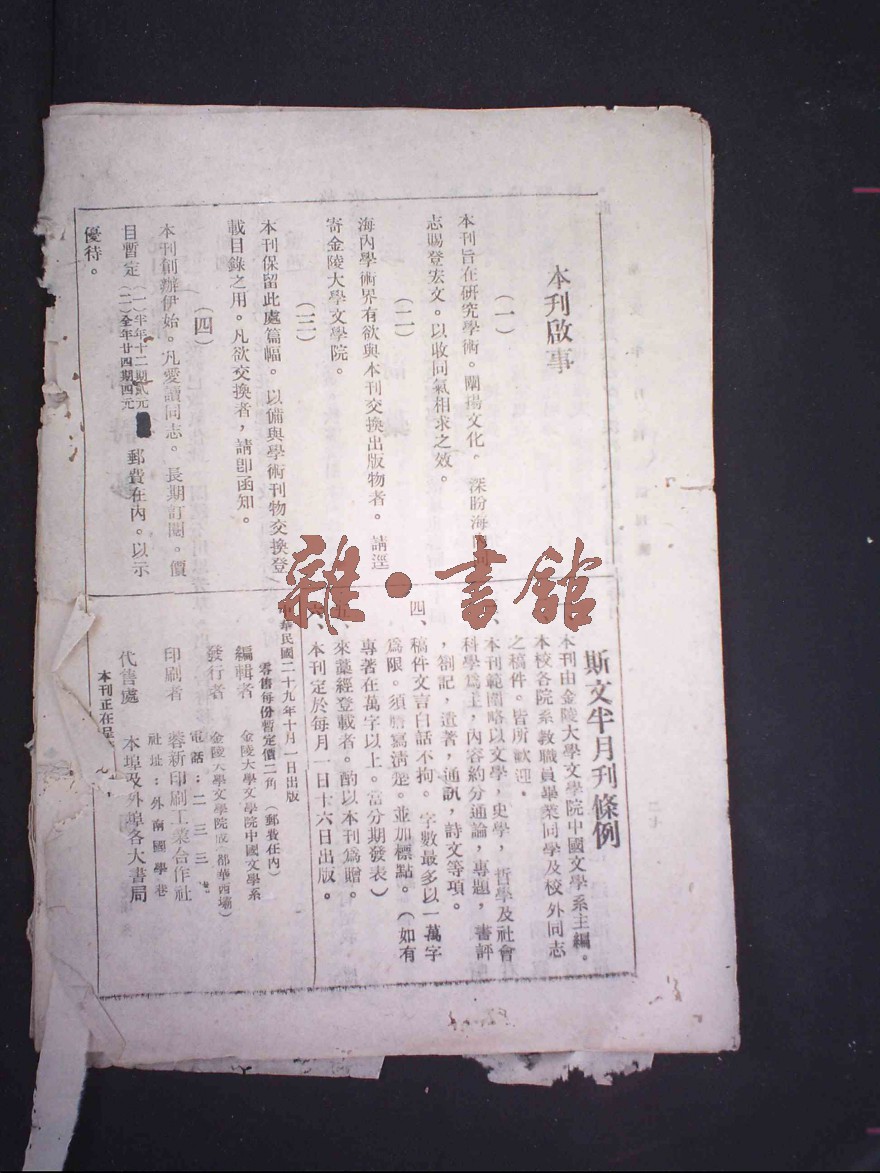 本刊啟事
(一)
本刊旨在研究學術。闡揚文化。深盼海內同
志賜登宏文。以收同氣相求之效。
(二)
海內學術界有欲與本刊交換出版物者。請逕
寄金陵大學文學院。
(三)
本刊保留此處篇幅。以備與學術刊物交換登
載目錄之用。凡欲交換者,請卽函知。
(四)
本刊創辦伊始。凡愛讀同志。長期訂閱。價
目暫定(一)半年十二期貳元(二)全年廿四期四元 郵費在內。以示
優待。
斯文半月刊條例
本刊由金陵大學文學院中國文學系主編。
本校各院系教職員畢業同學及校外同志
之稿件。皆所歡迎。
本刊範圍略以文學,史學,哲學及社會
科學爲主,內容約分通論,專題,書評
,劄記,遺著,通訊,詩文等項。
四、稿件文言白話不拘。字數最多以一萬字
爲限。須謄寫淸楚。並加標點。(如有
專著在萬字以上。當分期發表)
五、來藁經登載者。酌以本刊爲贈。
六、本刊定於每月一日十六日出版。
中華民國二十九年十月一日出版
零售每份暫定價二角(郵費在內)
編輯者 金陵大學文學院中國文學系
發行者 金陵大學文學院(成都華西壩)
電話:二三三
印刷者 蓉新印刷工業合作社
社址:外南國學巷
代售處 本埠及外埠各大書局
本刊正在呈
雜·書館